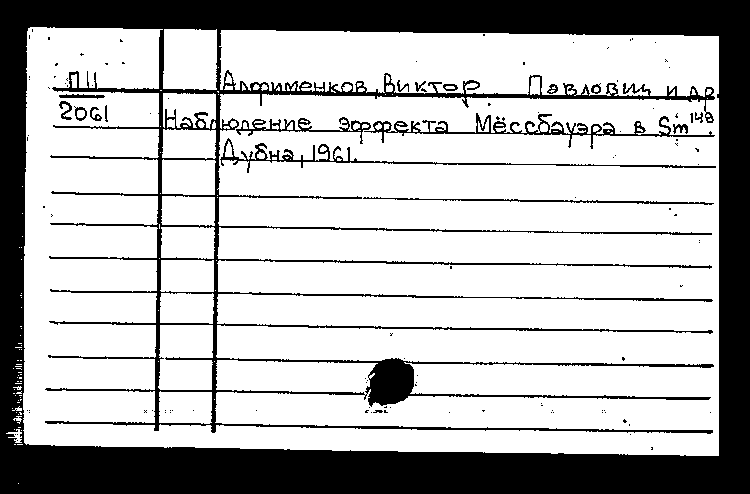 П11 Алфименков, Виктор Павлович и др.
2061 Наблюдение эффекта Мёссбауэра в Sm¹⁴⁹.
Дубна, 1961.